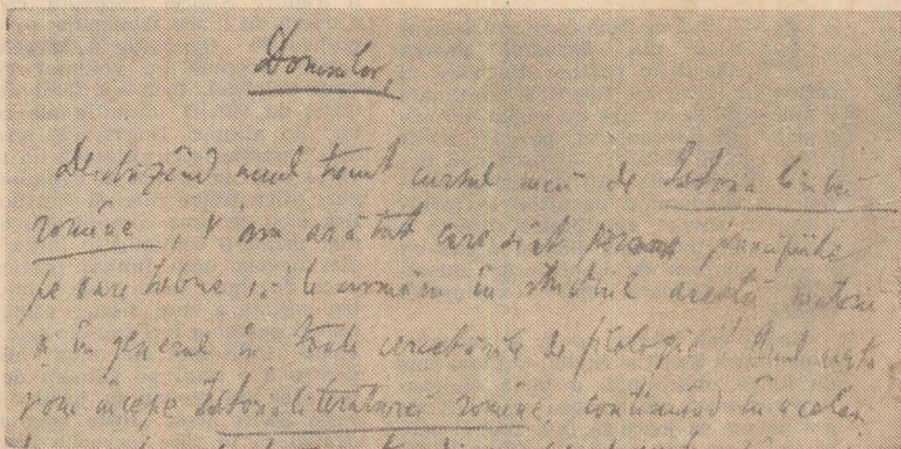 Domnilor,
Deschizând anul trecut cursul meu de Istoria limbii
române, v'am arătat care sînt principiile
pe care trebue să le urmăm în studiul acestei materii
și în general în toate cercetările de filologie. Anul acesta
vom începe Istoria literaturii române, continuând în acelaș